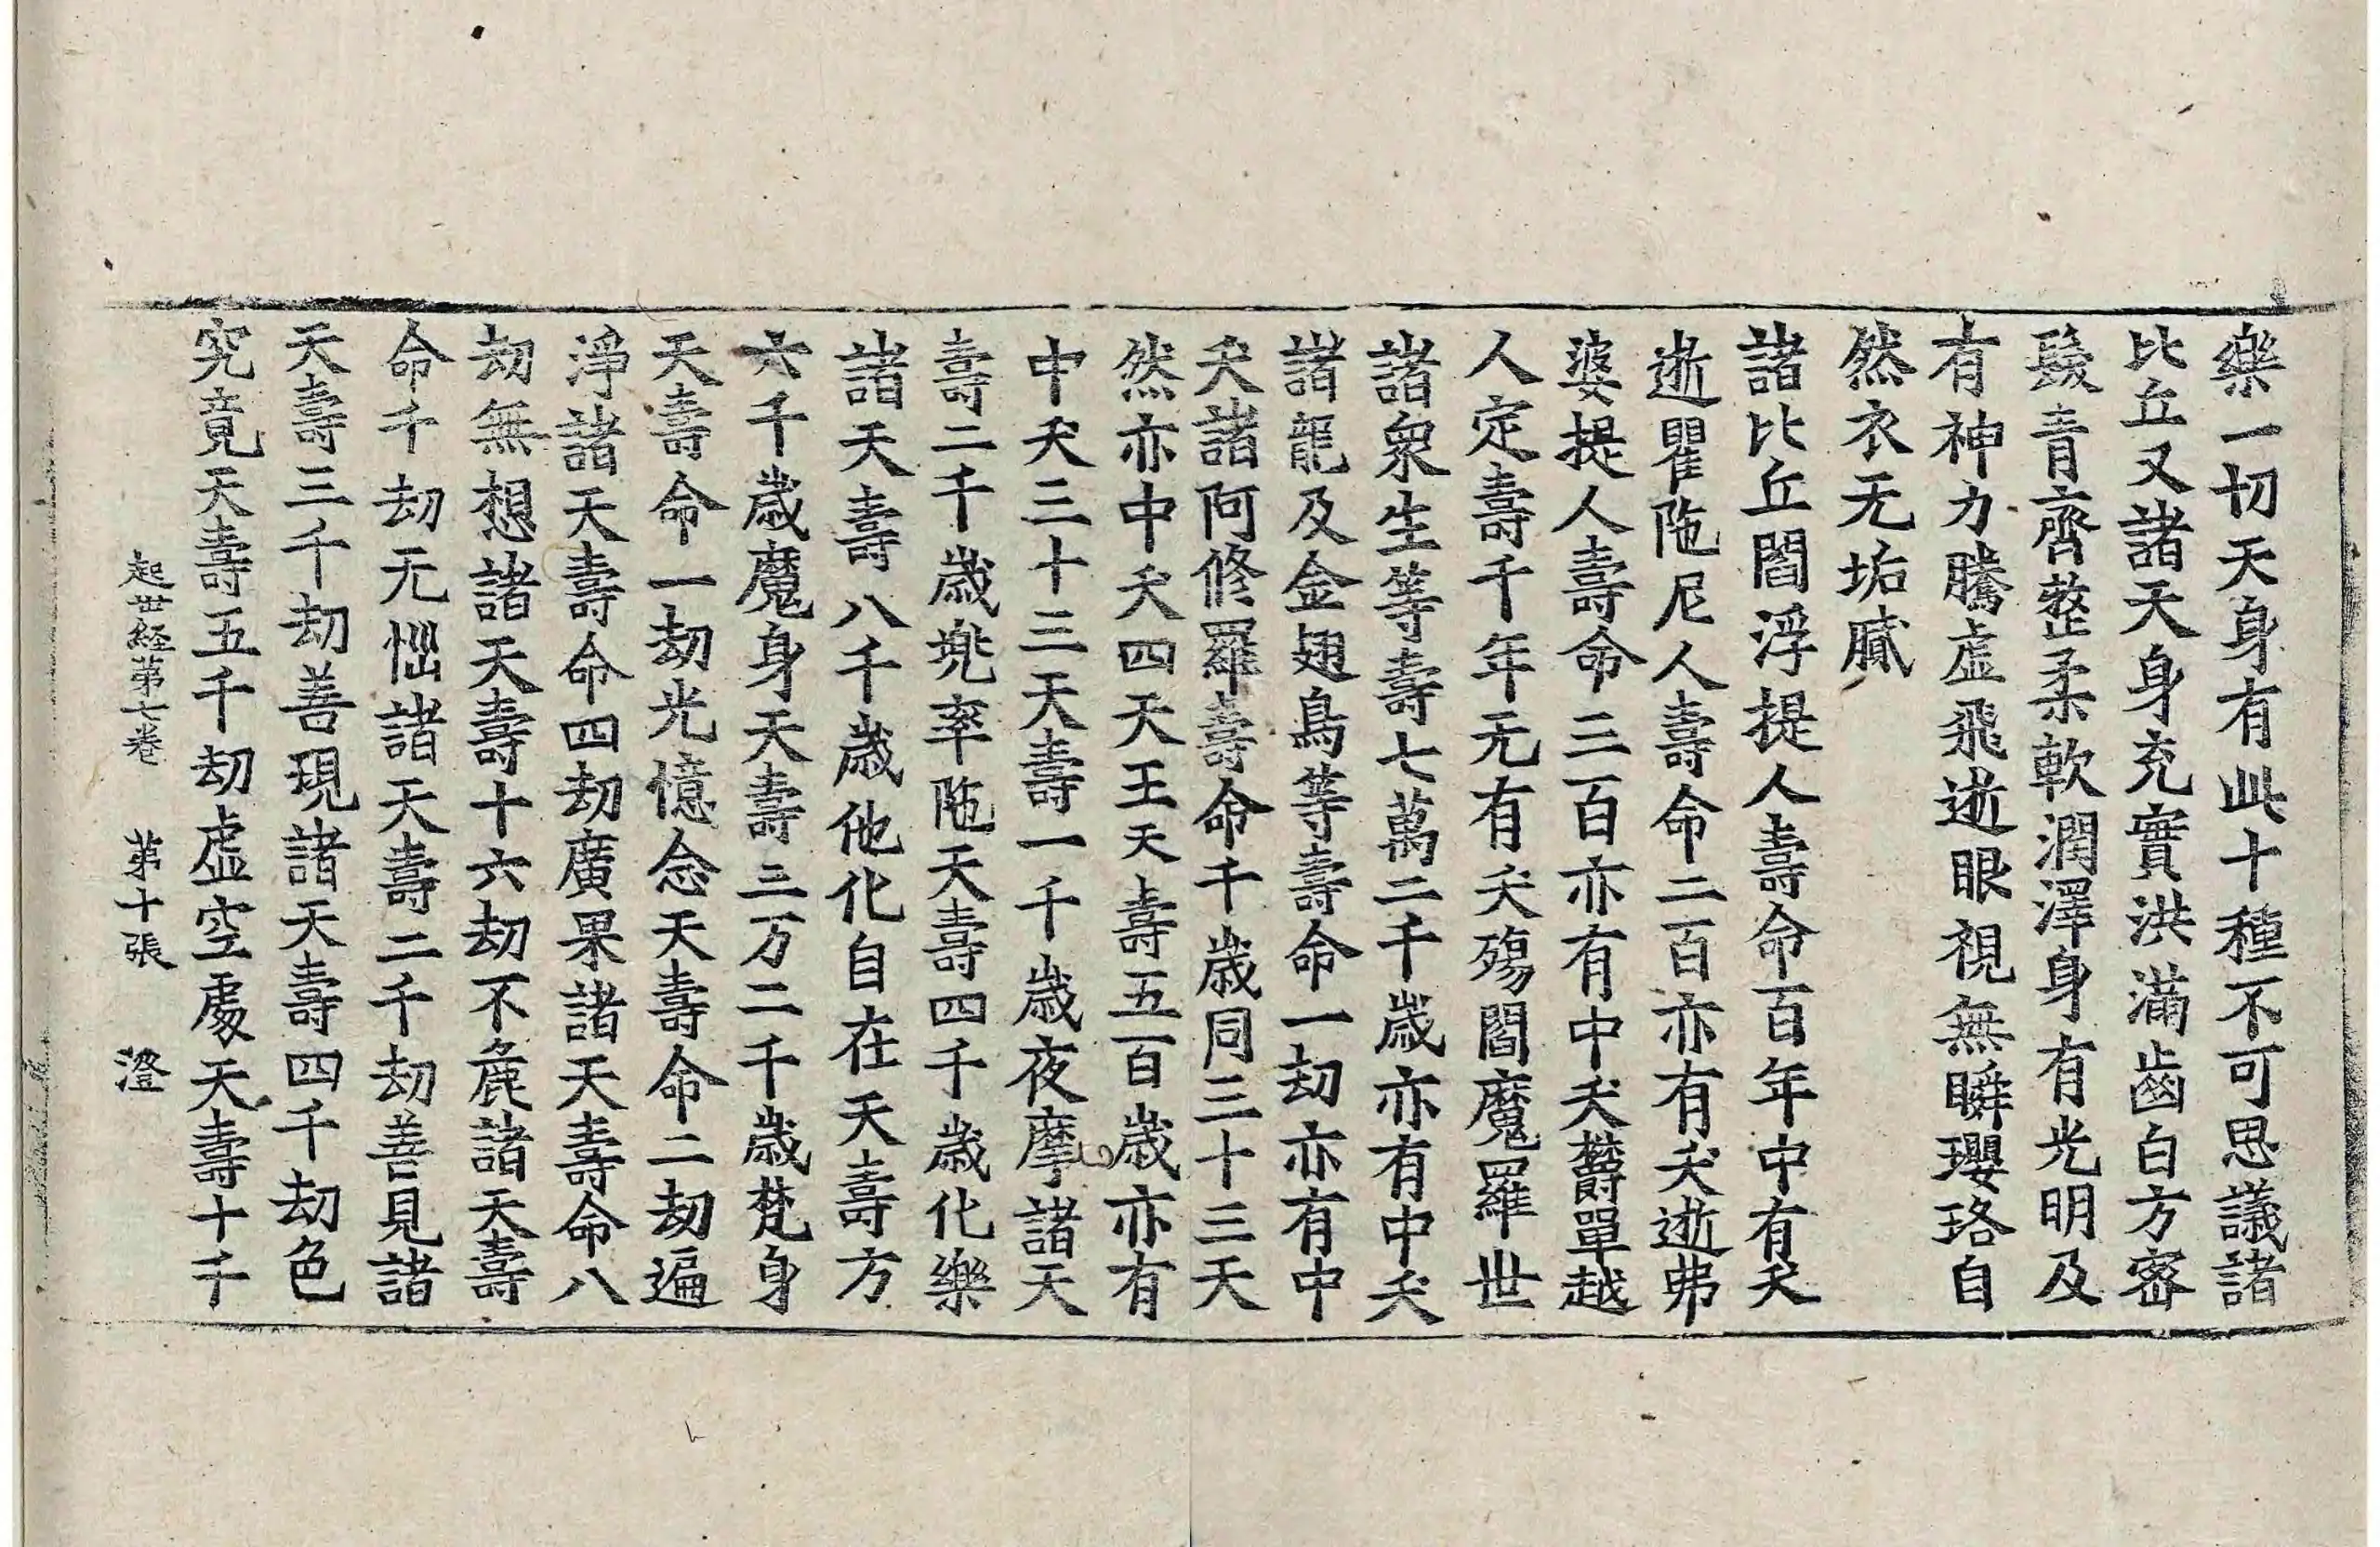 樂一切天身有此十種不可思議諸
比丘又諸天身充實洪滿齒白方密
髮青齊整柔軟潤澤身有光明及
有神力騰虛飛逝眼視無瞬瓔珞自
然衣无垢膩
諸比丘閻浮提人壽命百年中有夭
逝瞿陁尼人壽命二百亦有夭逝弗
婆提人壽命三百亦有中夭欝單越
人定壽千年无有夭殤閻魔羅世
諸衆生等壽七萬二千歲亦有中夭
諸龍及金翅鳥等壽命一劫亦有中
夭諸阿修羅壽命千歲同三十三天
然亦中夭四天王天壽五百歲亦有
中夭三十三天壽一千歲夜摩諸天
壽二千歲兠率陁天壽四千歲化樂
諸天壽八千歲他化自在天壽方
六千歲魔身天壽三万二千歲梵身
天壽命一劫光憶念天壽命二劫遍
淨諸天壽命四劫廣果諸天壽命八
劫無想諸天壽十六劫不麁諸天壽
命千劫无惱諸天壽二千劫善見諸
天壽三千劫善現諸天壽四千劫色
究竟天壽五千劫虛空處天壽十千
起世経第七卷 第十張 澄